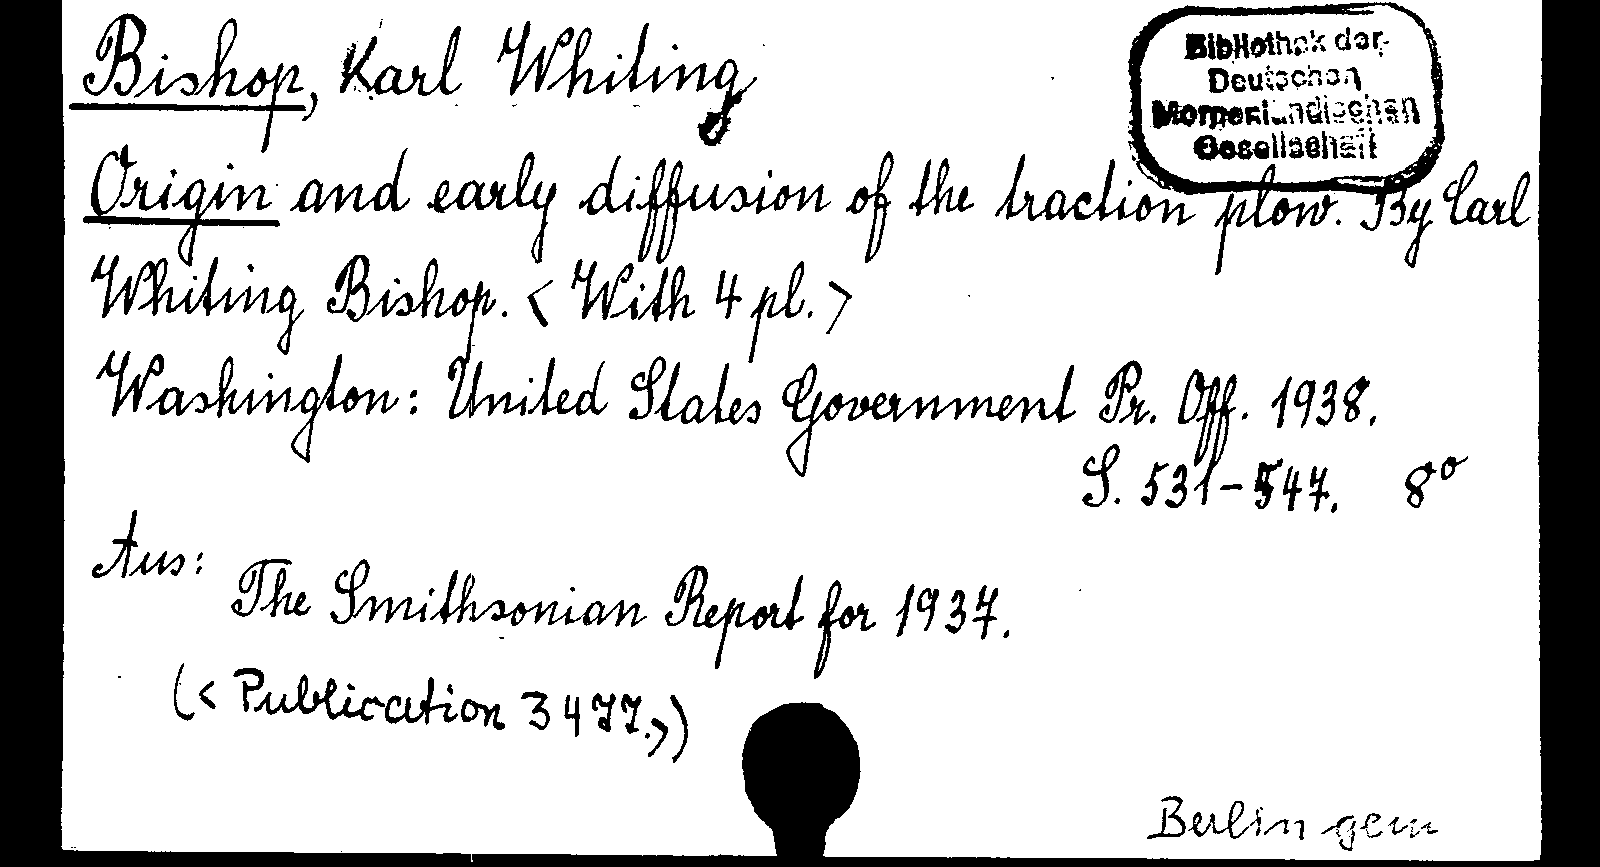 Bishop, Karl Whiting
Bibliothek der
Deutschen
Morgenländischen
Gesellschaft
Origin and early diffusion of the traction plow. By Carl
Whiting Bishop. < With 4 pl. >
Washington: United States Government Pr. Off. 1938.
S. 531-547. 8°
Aus:
The Smithsonian Report for 1937.
(< Publication 3477.>)
Berlin gem